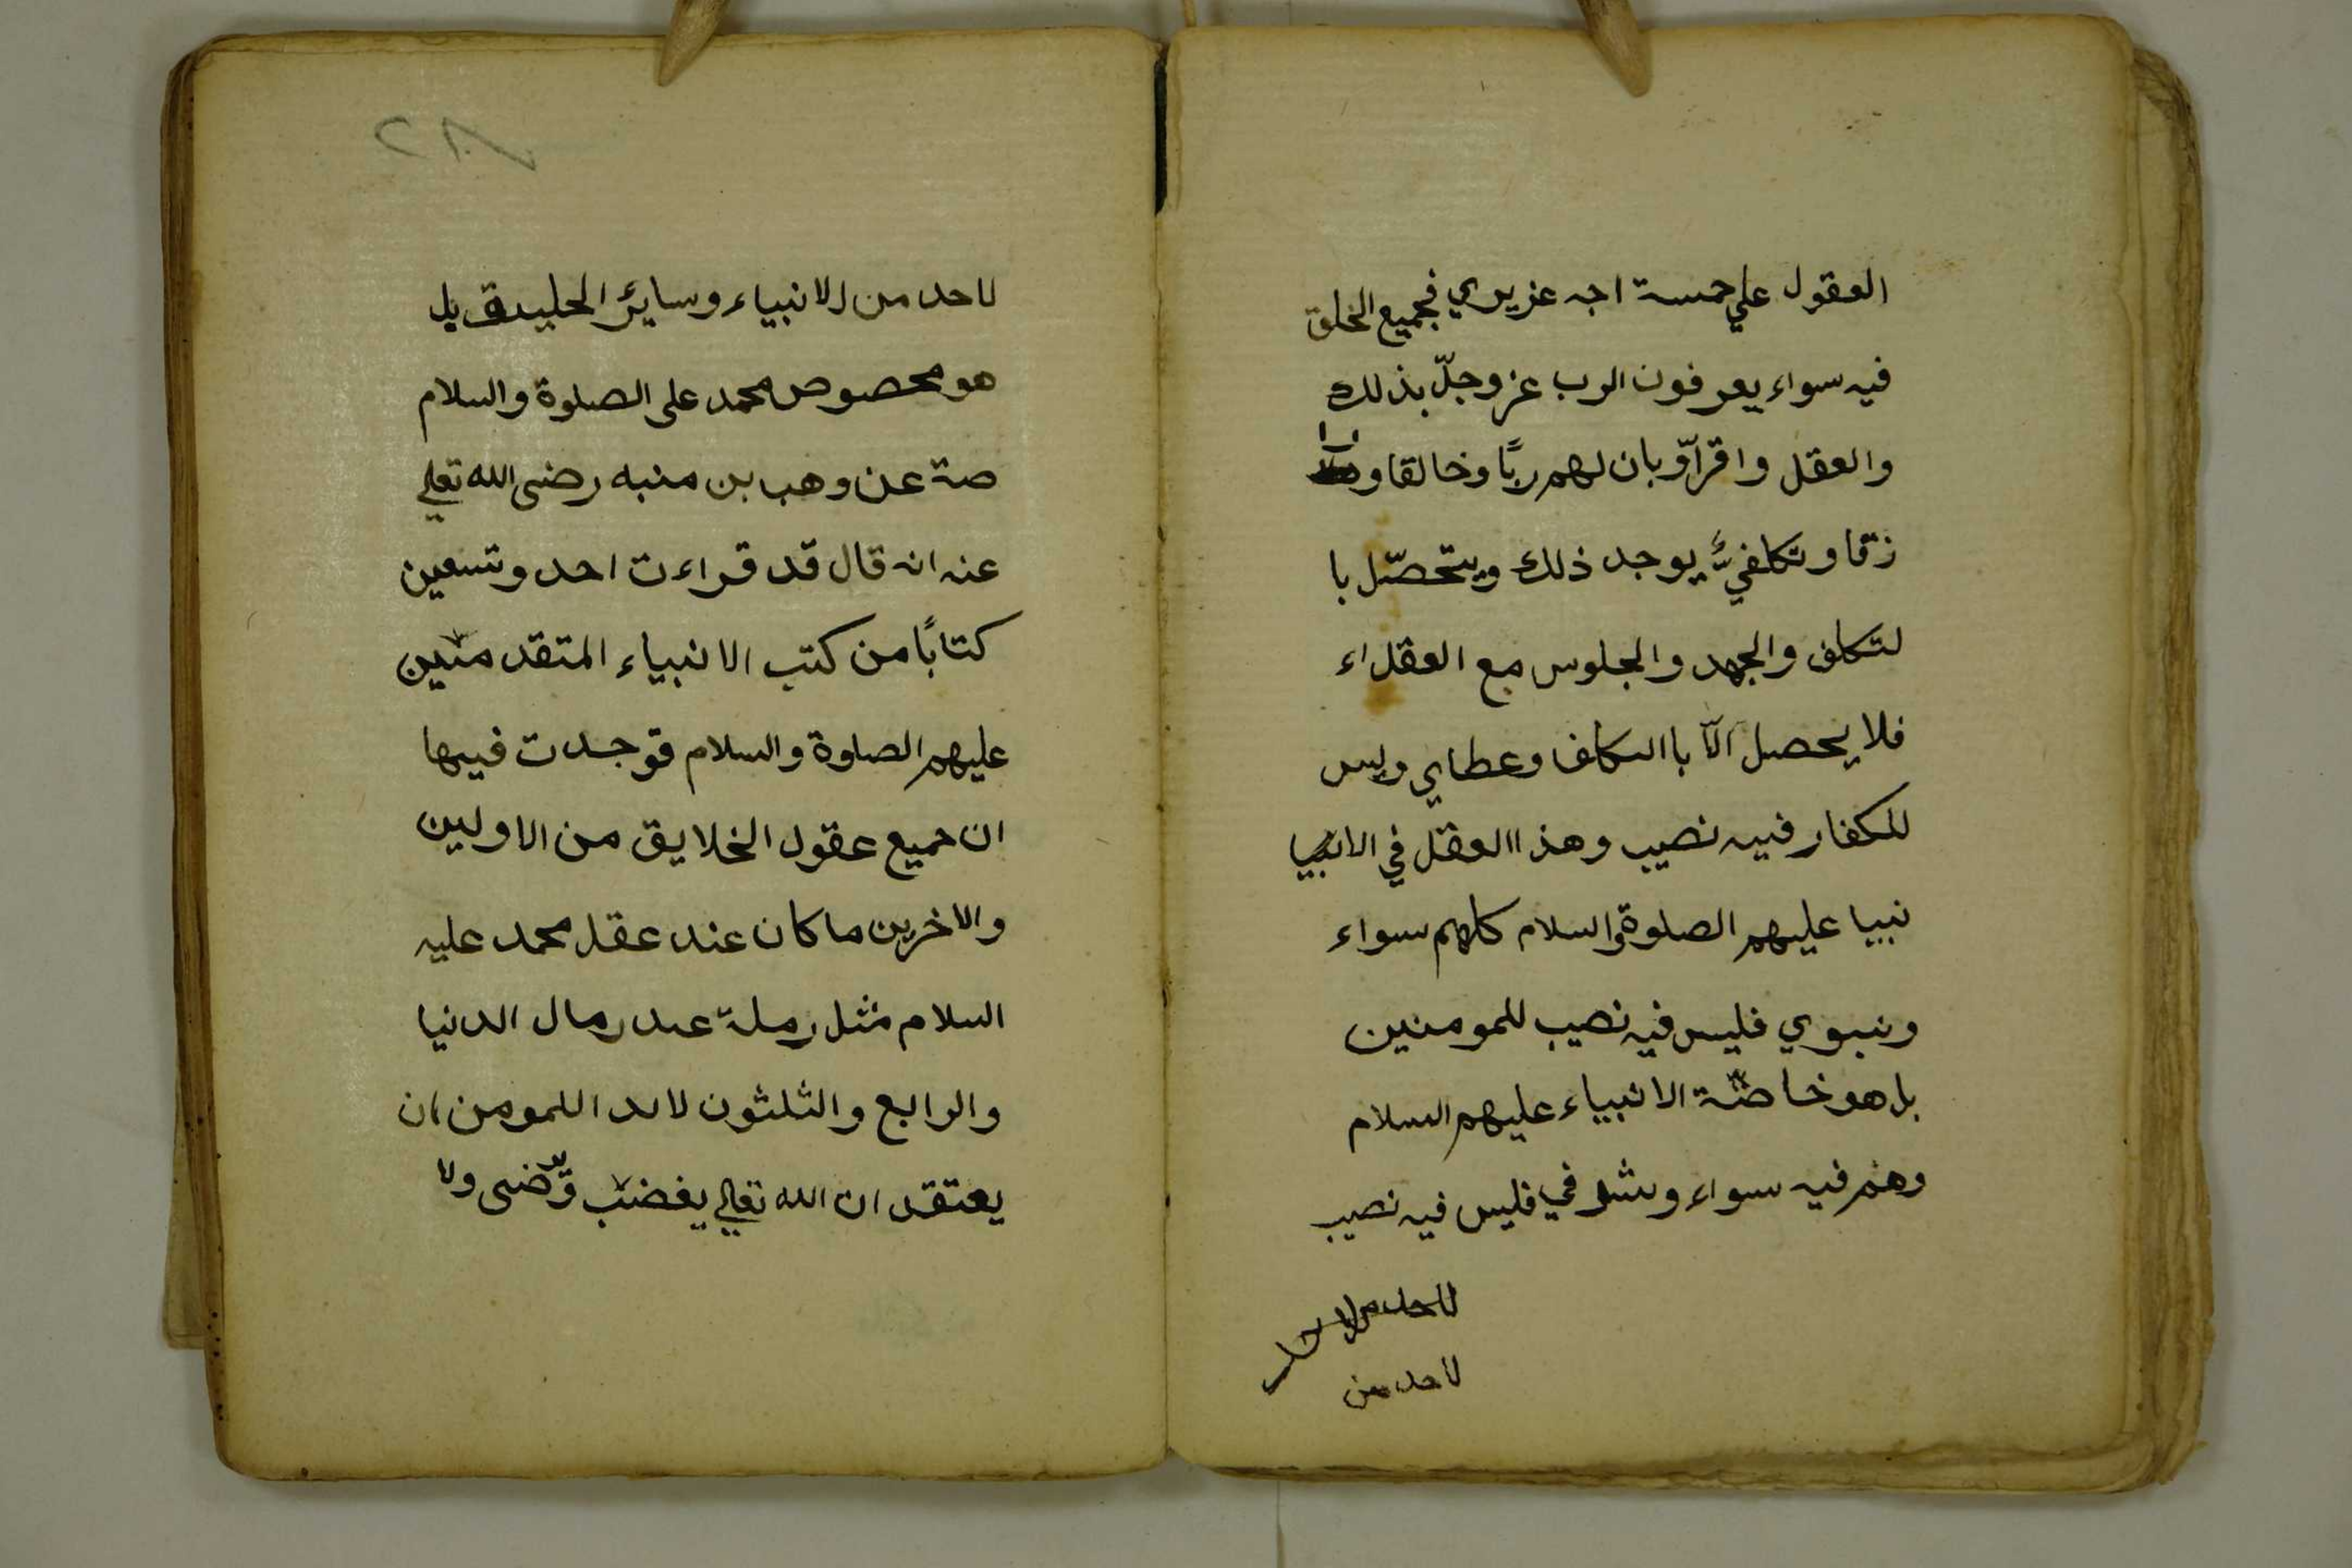 العقول علي خمسة اجه عزيري فجميع الخلق
فيه سواء يعرفون الرب عز وجلّ بذلك
والعقل واقراّو بان لهم ربًا وخالقا و را
زقا وتكلفيٌّ يوجد ذلك ويتحصّل با
لتكلف والجهد والجلوس مع العقلاء
فلا يحصل الّا باالتكلف وعطاي وليس
للكفار فيه نصيب وهذا العقل في الانبيا
نبيا عليهم الصلوة والسلام كلهم سواء
ونبوي فليس فيه نصيب للمومنين
بل هو خاصّة الانبياء عليهم السلام
وهم فيه سواء وشرفي فليس فيه نصيب
لاحد من
٢٨
لاحد من الانبياء وسايئر الخليقة بل
هو مخصوص محمد على الصلوة والسلام
صة عن وهب بن منبه رضى الله تعلى
عنه انه قال قد قراءت احد وتسعين
كتابًا من كتب الانبياء المتقدمين
عليهم الصلوة والسلام فوجدت فيها
ان جميع عقول الخلايق من الاولين
والاخرين ما كان عند عقل محمد عليه
السلام مثل رملة عند رمال الدنيا
والرابع والثلثون لابد اللمومن ان
يعتقد ان الله تعالى يغضب ويرضى ولا